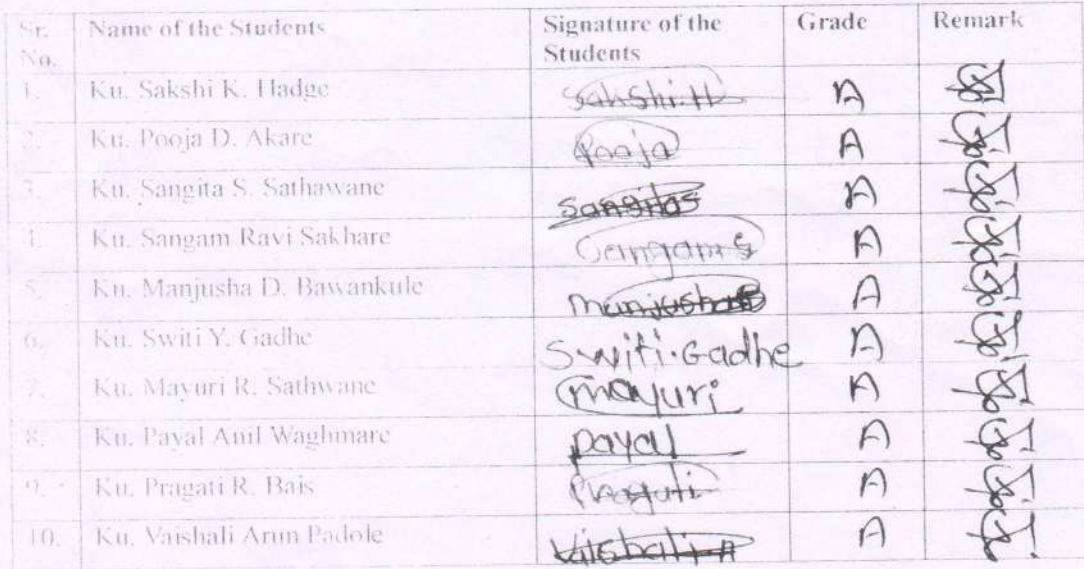 Sr. No. Name of the Students Signature of the Students Grade Remark
1. Ku. Sakshi K. Hadge Sakshi.H A
2. Ku. Pooja D. Akare Pooja A
3. Ku. Sangita S. Sathawane Sangitas A
4. Ku. Sangam Ravi Sakhare Sangam S A
5. Ku. Manjusha D. Bawankule manjusha A
6. Ku. Switi Y. Gadhe Switi.Gadhe A
7. Ku. Mayuri R. Sathwane mayuri A
8. Ku. Payal Anil Waghmare payal A
9. Ku. Pragati R. Bais Pragati A
10. Ku. Vaishali Arun Padole A